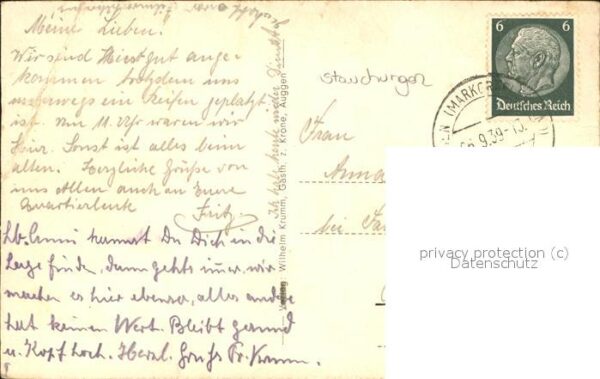 Meine Lieben.
Wir sind Hier gut ange-
kommen trotzdem uns
unterwegs ein Reifen geplatzt
ist. Um 11 Uhr waren wir
hier. Sonst ist alles beim
alten. Herzliche Grüße von
uns Allen auch an Eure
Quartierleute
Fritz.
Lb. Anni kannst Du Dich in die
Lage finden, dann gehts immer, wir
machen es hier ebenso, alles andre
hat keinen Wert. Bleibt gesund
u. Kopf hoch. Herzl. Grüße Fr. Krumm.
Ich habe heute meinen Dienst
Verlag Wilhelm Krumm, Gasth. z. Krone, Auggen
stauchungen
6 6
Deutsches Reich
(MARKGR
9.39-
Frau
Anna
bei
privacy protection (c)
Datenschutz